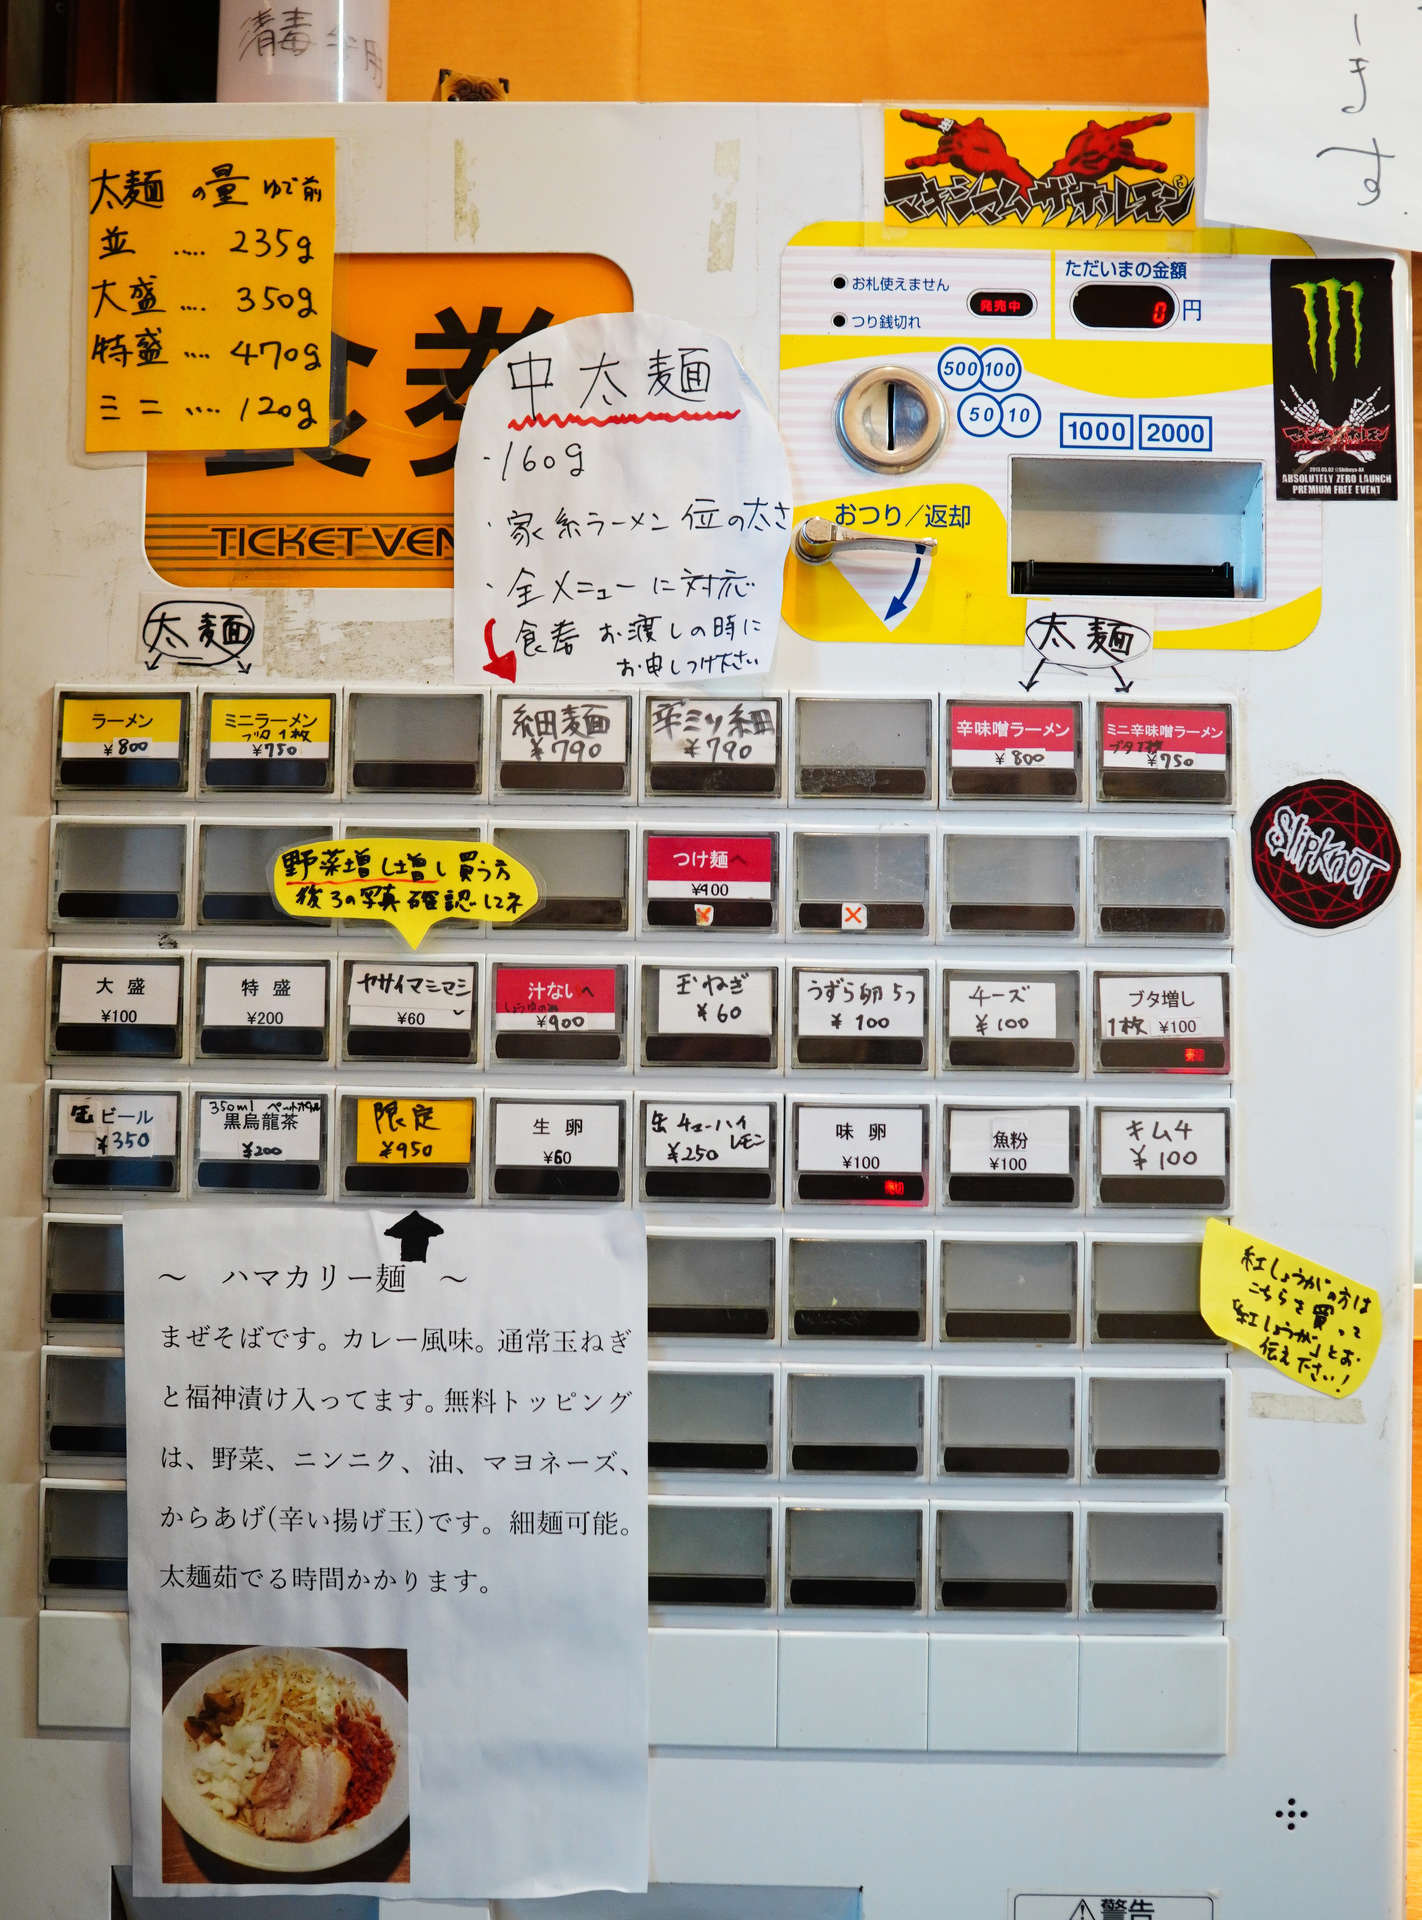 消毒
ます
太麺の量 ゆで前
並 ‥‥ 235g
大盛 ‥‥ 350g
特盛 ‥‥ 470g
ミニ ‥‥ 120g
食券
TICKET VEN
中太麺
・160g
・家系ラーメン位の太さ
・全メニューに対応
食券お渡しの時に
お申しつけ下さい
マキシマム ザ ホルモン
お札使えません
つり銭切れ
発売中
ただいまの金額
0円
500 100
50 10
1000 2000
おつり/返却
マキシマムザホルモン
2013.05.02 @Shibuya-AX
ABSOLUTELY ZERO LAUNCH
PREMIUM FREE EVENT
太麺
太麺
ラーメン
¥800
ミニラーメン
ブタ1枚
¥750
細麺
¥790
辛ミソ細
¥790
辛味噌ラーメン
¥800
ミニ辛味噌ラーメン
ブタ1枚
¥750
SlipKnoT
野菜増し増し買う方
後ろの写真確認してネ
つけ麺へ
¥100
大盛
¥100
特盛
¥200
ヤサイマシマシ
¥60
汁ないへ
¥900
玉ねぎ
¥60
うずら卵 5つ
¥100
チーズ
¥100
ブタ増し
1枚 ¥100
売切
缶ビール
¥350
350ml ペットボトル
黒烏龍茶
¥200
限定
¥950
生卵
¥60
缶チューハイ
レモン
¥250
味卵
¥100
売切
魚粉
¥100
キムチ
¥100
紅しょうがの方は
こちらを買って
「紅しょうが」とお
伝え下さい!
~ ハマカリー麺 ~
まぜそばです。カレー風味。通常玉ねぎ
と福神漬け入ってます。無料トッピング
は、野菜、ニンニク、油、マヨネーズ、
からあげ(辛い揚げ玉)です。細麺可能。
太麺茹でる時間かかります。
警告